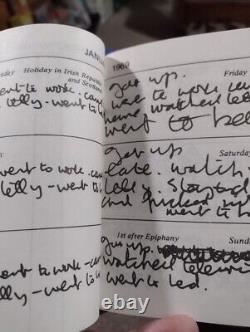 JANU
sday Holiday in Irish Repub
and Scotland
ent to work. came
telly - went to b
ent to work - can
telly - went to b
ent to work - can
telly - went to b
1969
Friday
got up.
went to work came
home watched telly
went to bed
Saturday
got up
late. watch
telly. stayed
and
went to b
1st after Epiphany Sund
got up.
watched televis
went to bed.